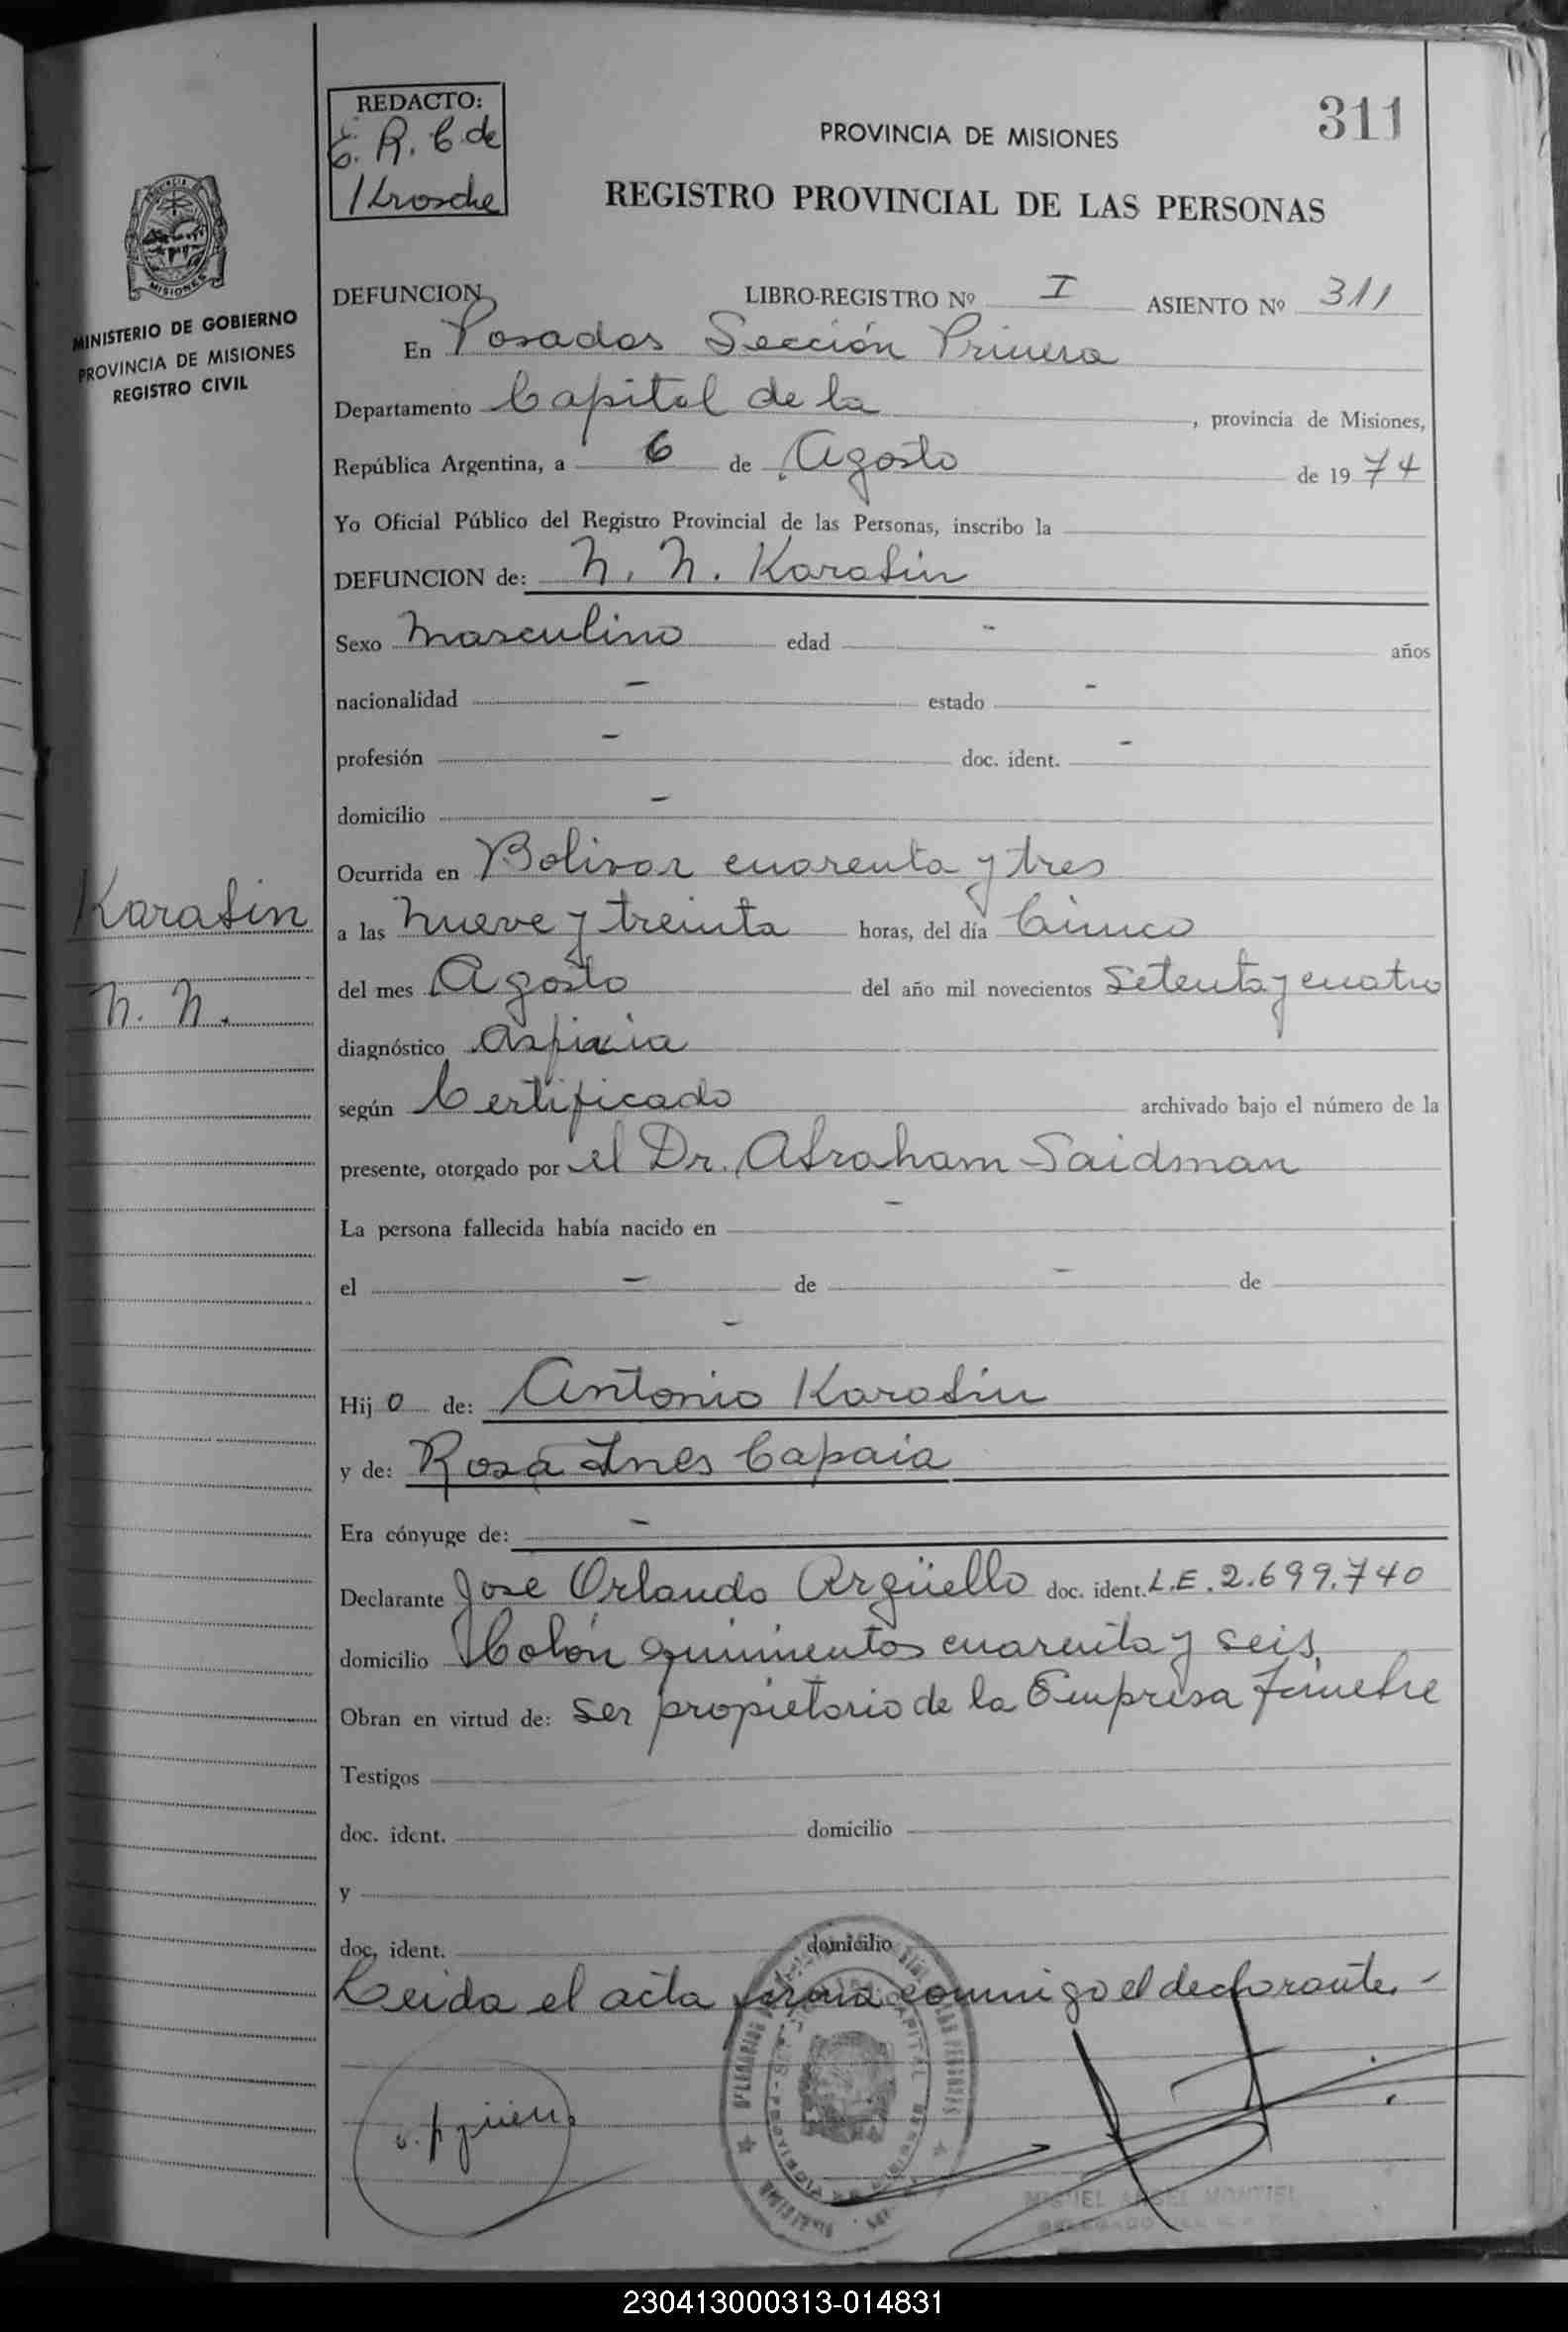 REDACTO:
E. R. C. de
Krosche
311
PROVINCIA DE MISIONES
REGISTRO PROVINCIAL DE LAS PERSONAS
MISIONES
MINISTERIO DE GOBIERNO
PROVINCIA DE MISIONES
REGISTRO CIVIL
DEFUNCION LIBRO-REGISTRO Nº I ASIENTO Nº 311
En Posadas Sección Primera
Departamento Capital de la , provincia de Misiones,
República Argentina, a 6 de Agosto de 1974
Yo Oficial Público del Registro Provincial de las Personas, inscribo la
DEFUNCION de: N. N. Karabin
Sexo Masculino edad - años
nacionalidad - estado -
profesión - doc. ident. -
domicilio -
Ocurrida en Bolivar cuarenta y tres
Karabin
a las nueve y treinta horas, del día Cinco
N. N.
del mes Agosto del año mil novecientos setenta y cuatro
diagnóstico Asfixia
según Certificado archivado bajo el número de la
presente, otorgado por el Dr. Abraham Saidman
La persona fallecida había nacido en -
el - de - de
-
Hijo de: Antonio Karabin
y de: Rosa Ines Capaia
Era cónyuge de: -
Declarante José Orlando Argüello doc. ident. L.E. 2.699.740
domicilio Colón quinientos cuarenta y seis
Obran en virtud de: ser propietario de la Empresa Fúnebre
Testigos
doc. ident. domicilio
y
doc. ident. domicilio
Leida el acta firma conmigo el declarante. -
MIGUEL ANGEL MONTIEL
230413000313-014831